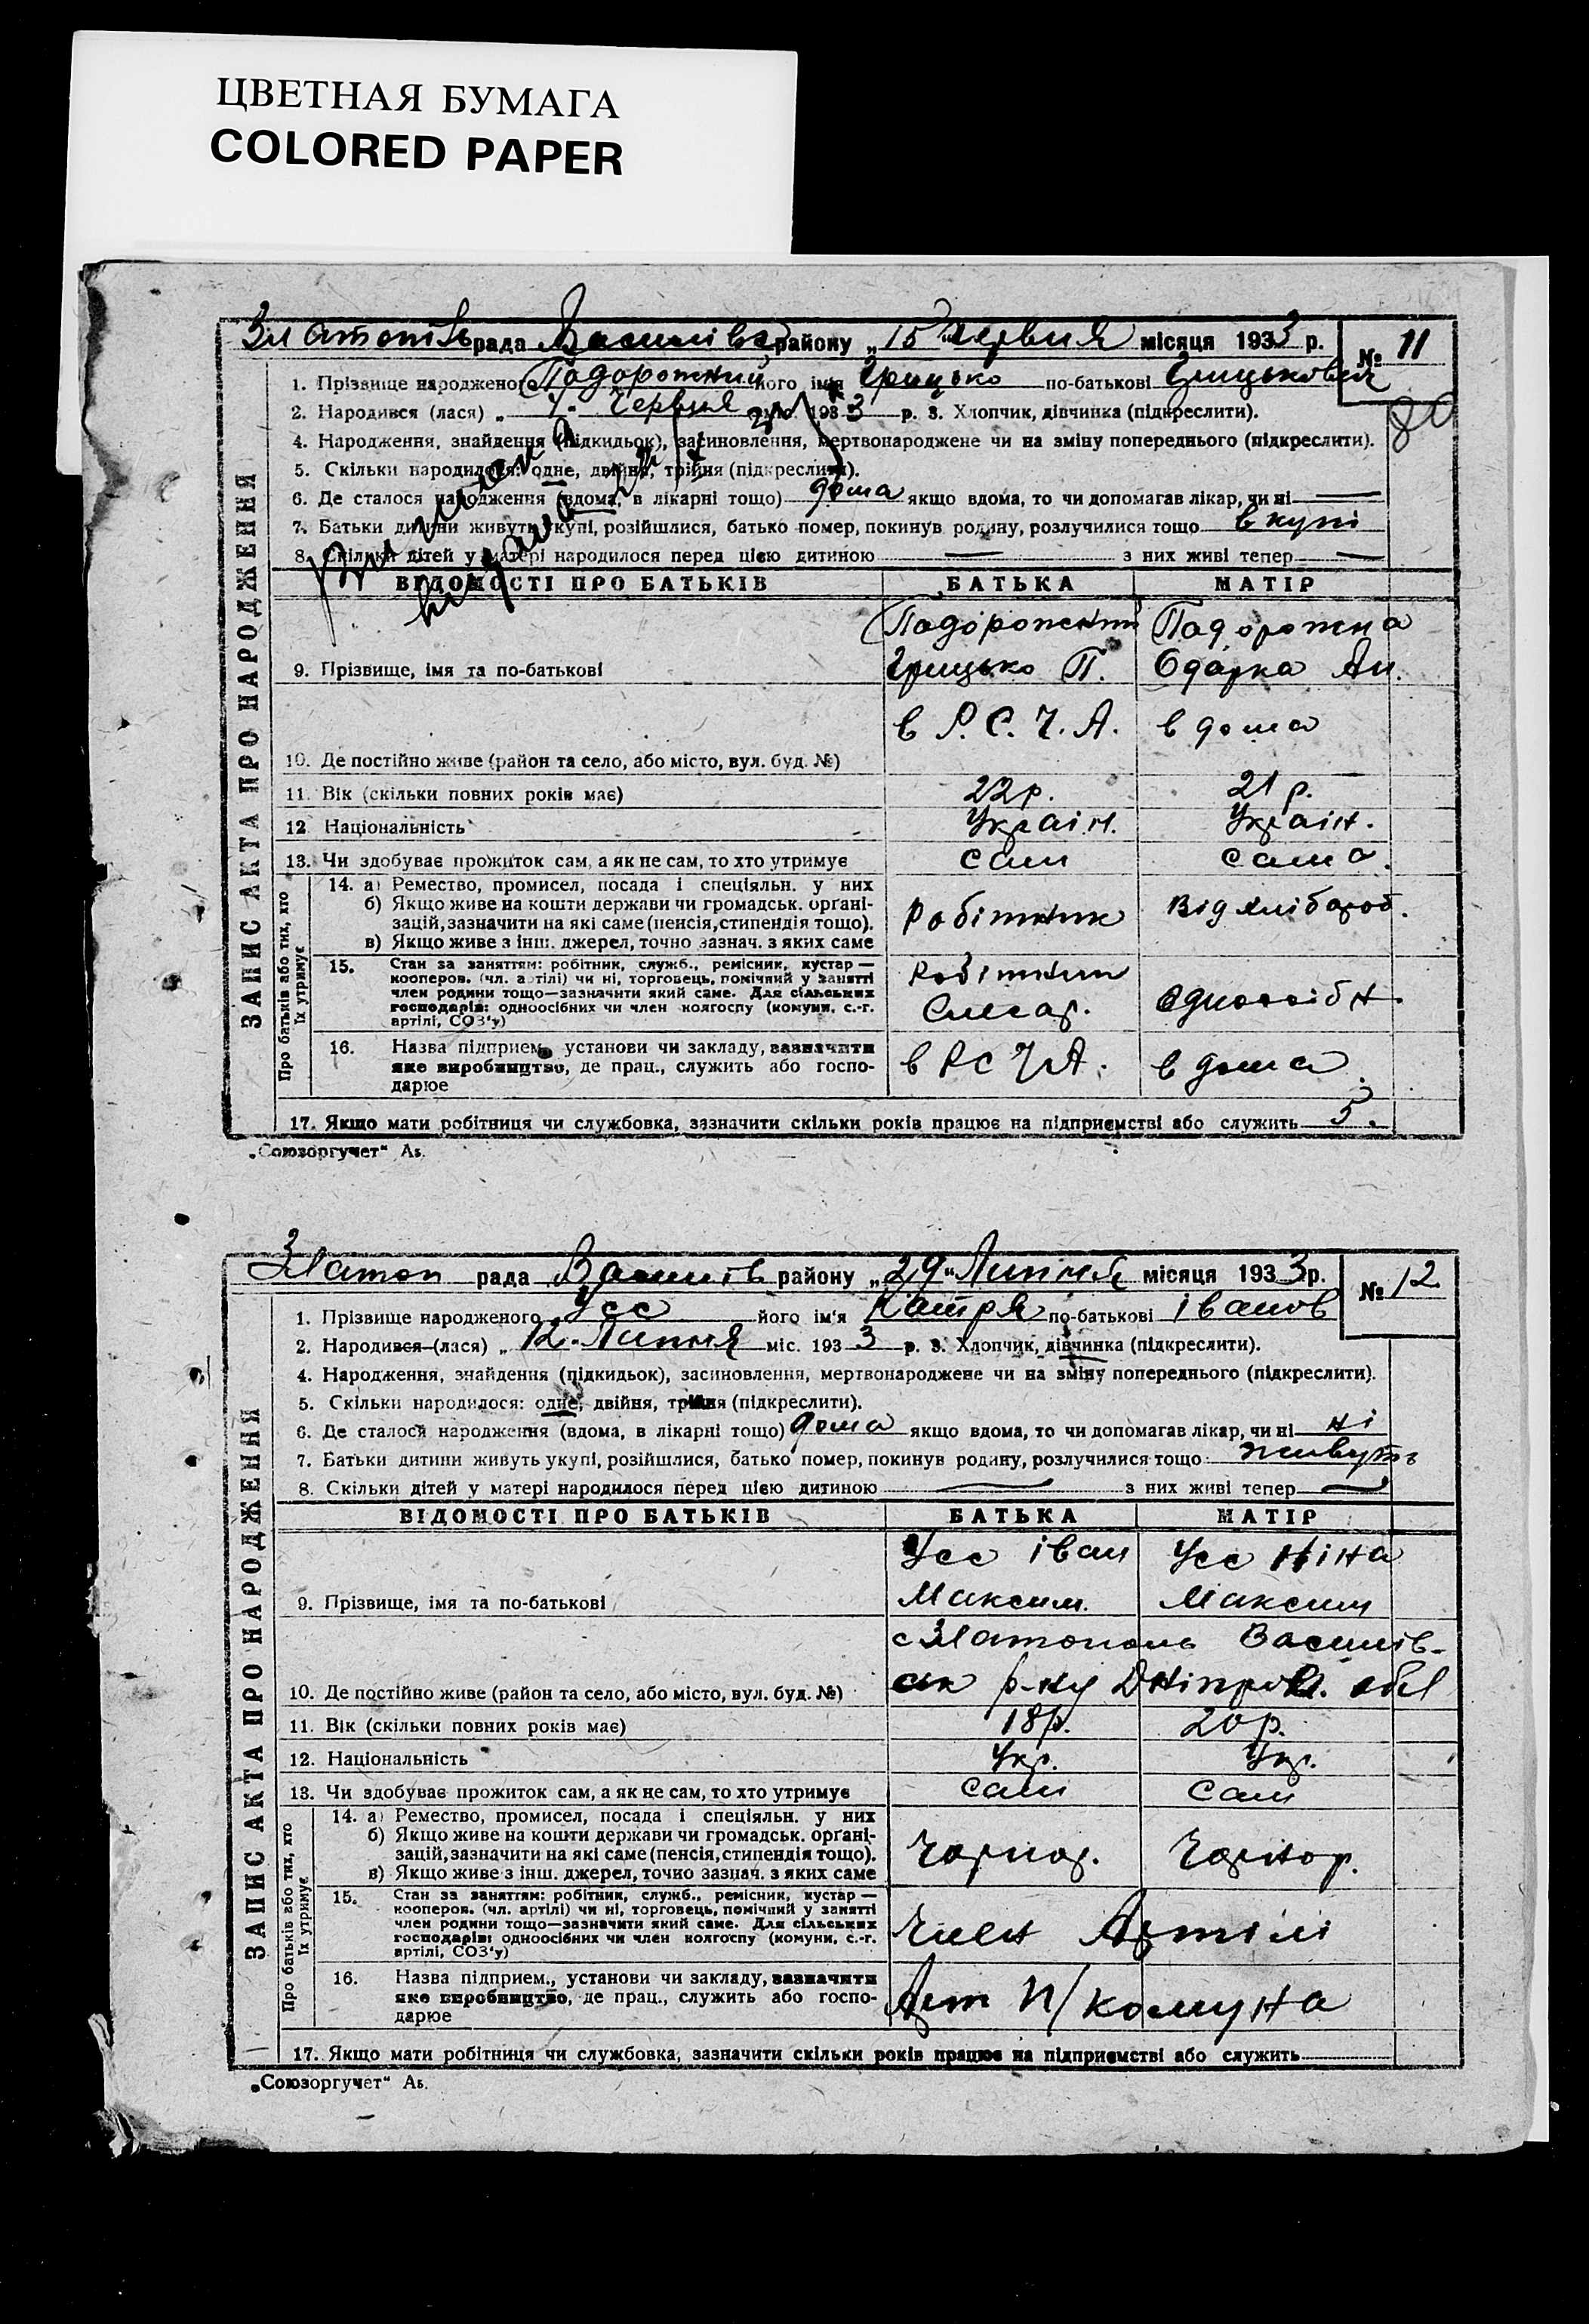 ЦВЕТНАЯ БУМАГА
COLORED PAPER
Златопіль рада Василівс району „15“ червня місяця 1933 р. № 11
1. Прізвище народженого Подорожний його імя Грицько по-батькові Грицькович
80
2. Народився (лася) „ 7 - Червня 1933 р. 3. Хлопчик, дівчинка (підкреслити).
4. Народження, знайдення (підкидьок), засиновлення, мертвонароджене чи на зміну попереднього (підкреслити).
5. Скільки народилося: одне, двійня, трійня (підкреслити).
6. Де сталося народження (вдома, в лікарні тощо) дома якщо вдома, то чи допомагав лікар, чи ні
7. Батьки дитини живуть укупі, розійшлися, батько помер, покинув родину, розлучилися тощо вкупі
8. Скільки дітей у матері народилося перед цією дитиною з них живі тепер
ВІДОМОСТІ ПРО БАТЬКІВ БАТЬКА МАТІР
Подорожний Подорожна
9. Прізвище, імя та по-батькові Грицько П. Одарка Ан.
в Р.С.Ч.А. в дома
10. Де постійно живе (район та село, або місто, вул. буд. №)
11. Вік (скільки повних років має) 22р. 21 р.
12 Національність Україн. Україн.
13. Чи здобуває прожиток сам, а як не сам, то хто утримує сам сама.
14. а) Ремество, промисел, посада і спеціяльн. у них
б) Якщо живе на кошти держави чи громадськ. орґані-
зацій, зазначити на які саме (пенсія, стипендія тощо).
в) Якщо живе з інш. джерел, точно зазнач. з яких саме
Робітник Від хлібороб.
15. Стан за заняттям: робітник, служб., ремісник, кустар —
кооперов. (чл. артілі) чи ні, торговець, помічний у занятті
член родини тощо—зазначити який саме. Для сільських
господарів: одноосібних чи член колгоспу (комуни, с.-г.
артілі, СОЗ'у)
Робітник
Слесар. Одноосібн.
16. Назва підприєм., установи чи закладу, зазначити
яке виробництво, де прац., служить або госпо-
дарює
в РСЧА. в дома
17. Якщо мати робітниця чи службовка, зазначити скільки років працює на підприємстві або служить 5.
ЗАПИС АКТА ПРО НАРОДЖЕННЯ
Про батьків або тих, хто
їх утримує
„Союзоргучет“ Аб.
Златоп рада Василів району „29“ Липня місяця 1933р. № 12
1. Прізвище народженого Усс його ім'я Катря по-батькові Іванов
2. Народився (лася) „ 12 - Липня міс. 1933 р. 3. Хлопчик, дівчинка (підкреслити).
4. Народження, знайдення (підкидьок), засиновлення, мертвонароджене чи на зміну попереднього (підкреслити).
5. Скільки народилося: одне, двійня, трійня (підкреслити).
6. Де сталося народження (вдома, в лікарні тощо) дома якщо вдома, то чи допомагав лікар, чи ні ні
7. Батьки дитини живуть укупі, розійшлися, батько помер, покинув родину, розлучилися тощо живуть
8. Скільки дітей у матері народилося перед цією дитиною з них живі тепер
ВІДОМОСТІ ПРО БАТЬКІВ БАТЬКА МАТІР
Усс Іван Усс Ніна
9. Прізвище, імя та по-батькові Максим. Максим
с Златополь Василів-
10. Де постійно живе (район та село, або місто, вул. буд. №) ськ р-ну Дніпроп. обл
11. Вік (скільки повних років має) 18р. 20р.
12. Національність Укр. Укр.
13. Чи здобуває прожиток сам, а як не сам, то хто утримує сам сам
14. а) Ремество, промисел, посада і спеціяльн. у них
б) Якщо живе на кошти держави чи громадськ. орґані-
зацій, зазначити на які саме (пенсія, стипендія тощо).
в) Якщо живе з інш. джерел, точно зазнач. з яких саме
Чорнор. Чорнор.
15. Стан за заняттям: робітник, служб., ремісник, кустар —
кооперов. (чл. артілі) чи ні, торговець, помічний у занятті
член родини тощо—зазначити який саме. Для сільських
господарів: одноосібних чи член колгоспу (комуни, с.-г.
артілі, СОЗ'у)
Член Артілі
16. Назва підприєм., установи чи закладу, зазначити
яке виробництво, де прац., служить або госпо-
дарює
Арт П/комуна
17. Якщо мати робітниця чи службовка, зазначити скільки років працює на підприємстві або служить
ЗАПИС АКТА ПРО НАРОДЖЕННЯ
Про батьків або тих, хто
їх утримує
„Союзоргучет“ Аб.